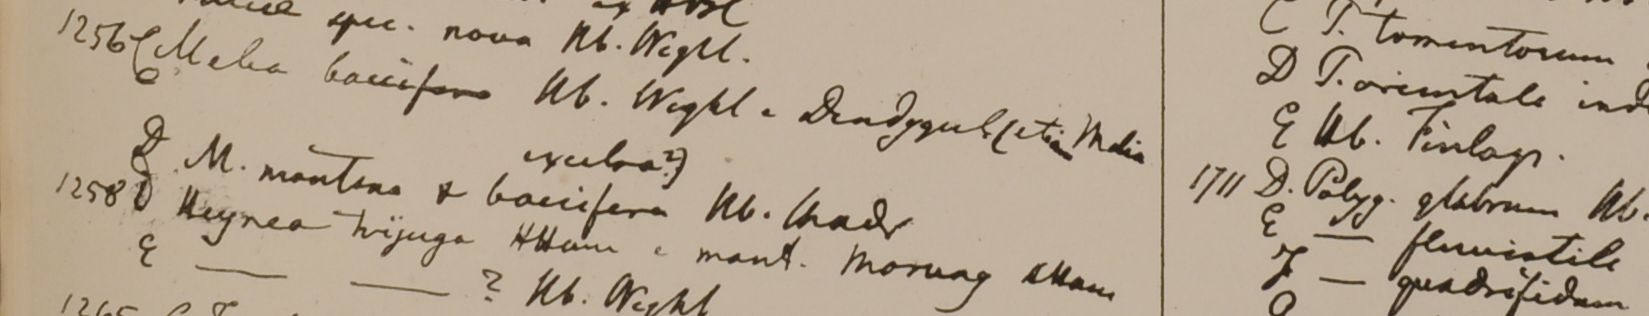 spec. nova Hb. Wight.
1256 C Melia baccifera Hb. Wight e Dindygul (etiam Melia
excelsa?)
D M. montana & baccifera Hb. Madr
1258 D Heynea trijuga HHam e mont. Morung HHam
E — — ? Hb. Wight
1265 C
C T. tomentosum
D T. orientale ind
E Hb. Finlays.
1711 D. Polyg. glabrum Hb.
E — fluviatile
F — quadrifidum